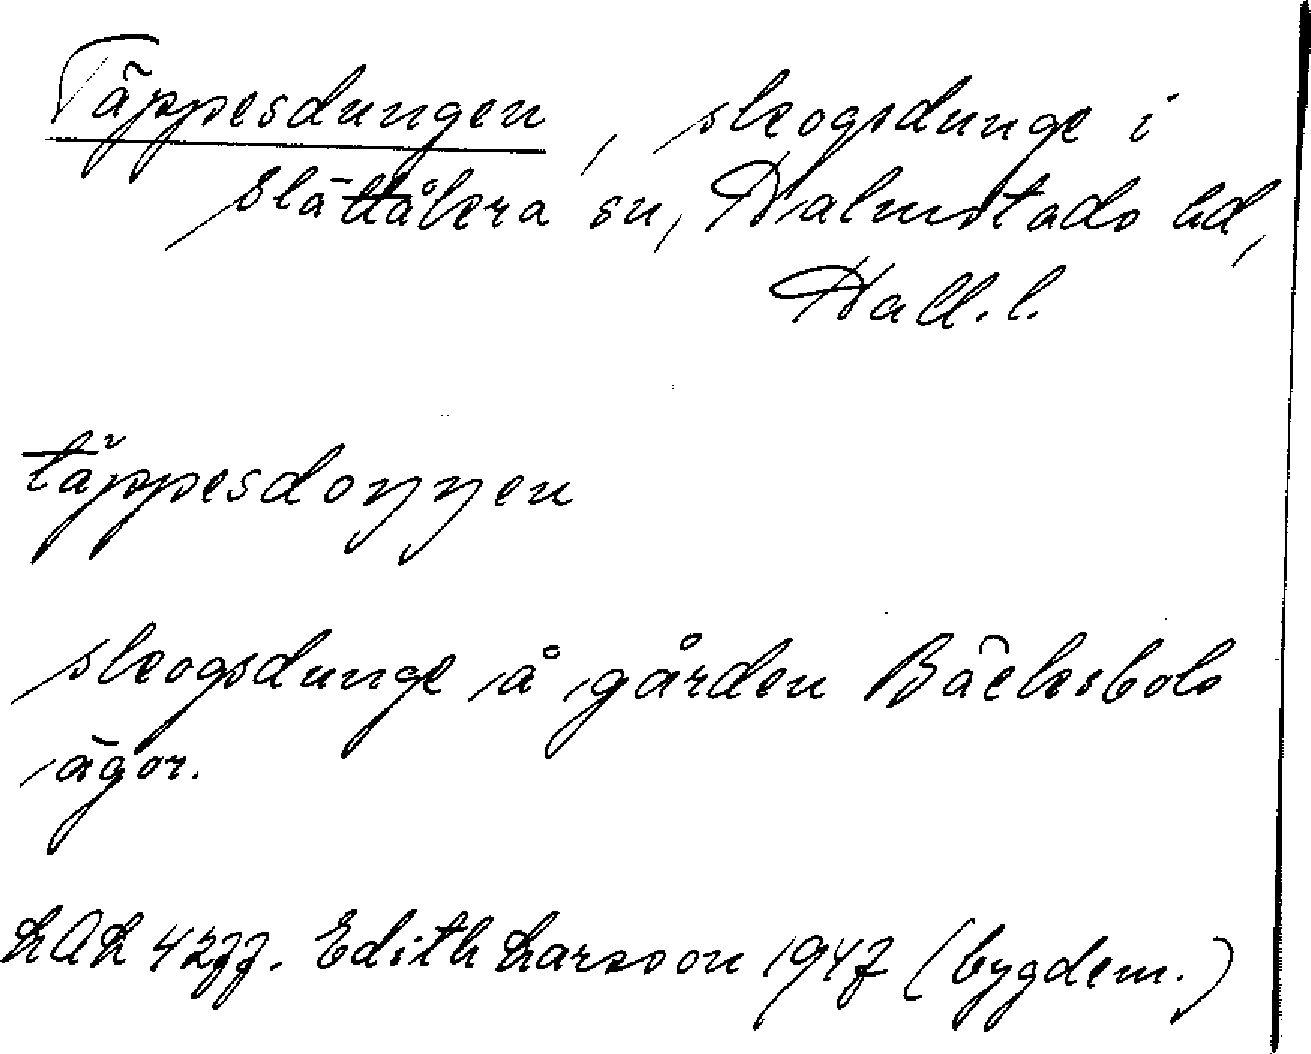 Täppesdungen, skogsdunge i
Slättåkra sn, Halmstads hd,
Hall. l.
täppesdoŋŋen
skogsdunge å gården Bäcksbols
ägor.
LAL 4277. Edith Larsson 1947 (bygdem.)